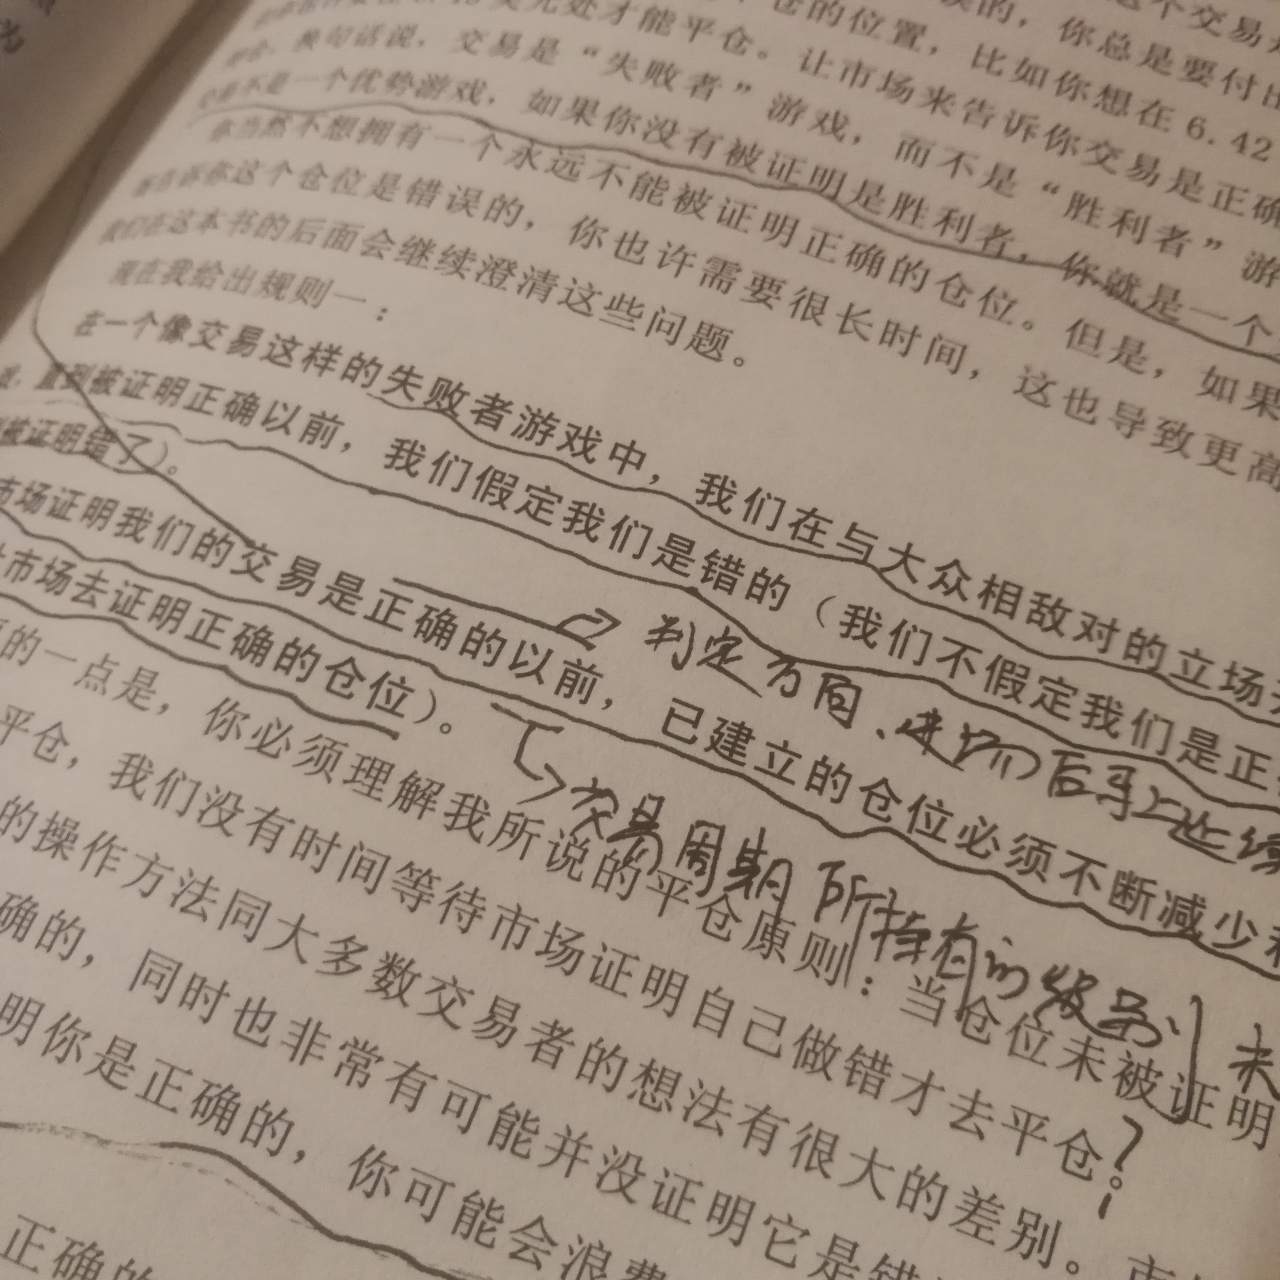 仓的位置，比如你想在6.42
处才能平仓。让市场来告诉你交易是正确
换句话说，交易是“失败者”游戏，而不是“胜利者”游
不是一个优势游戏，如果你没有被证明是胜利者，你就是一个
你当然不想拥有一个永远不能被证明正确的仓位。但是，如果
告诉你这个仓位是错误的，你也许需要很长时间，这也导致更高
我们在这本书的后面会继续澄清这些问题。
现在我给出规则一：
在一个像交易这样的失败者游戏中，我们在与大众相敌对的立场
戏，直到被证明正确以前，我们假定我们是错的（我们不假定我们是正
被证明错了）。
市场证明我们的交易是正确的以前，已建立的仓位必须不断减少
市场去证明正确的仓位）。
判定方向、进场后手上
交易周期所持有的级别
的一点是，你必须理解我所说的平仓原则：当仓位未被证明
平仓，我们没有时间等待市场证明自己做错才去平仓。
未
？
的操作方法同大多数交易者的想法有很大的差别。
确的，同时也非常有可能并没证明它是错
明你是正确的，你可能会浪费
正确的